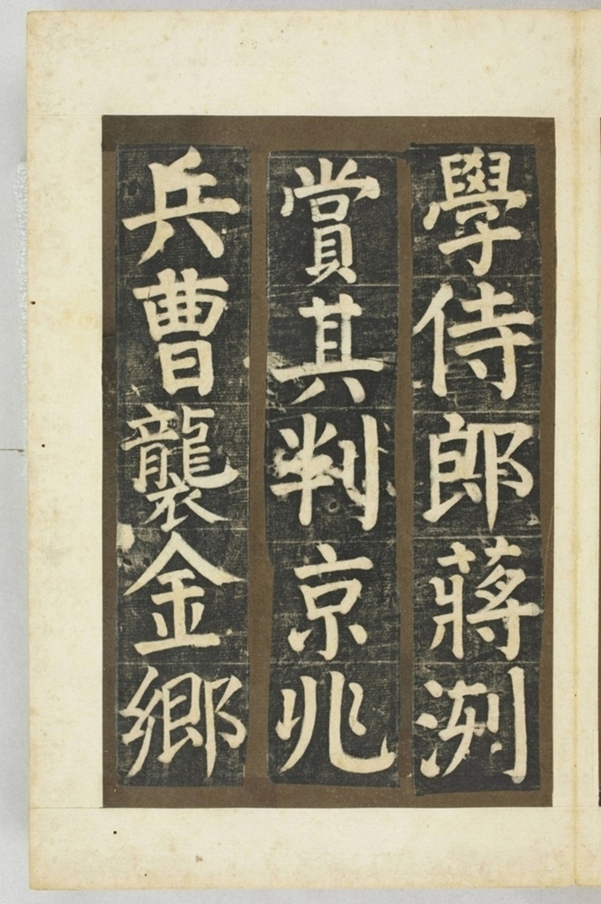 學侍郎蔣洌
賞其判京兆
兵曹襲金鄉